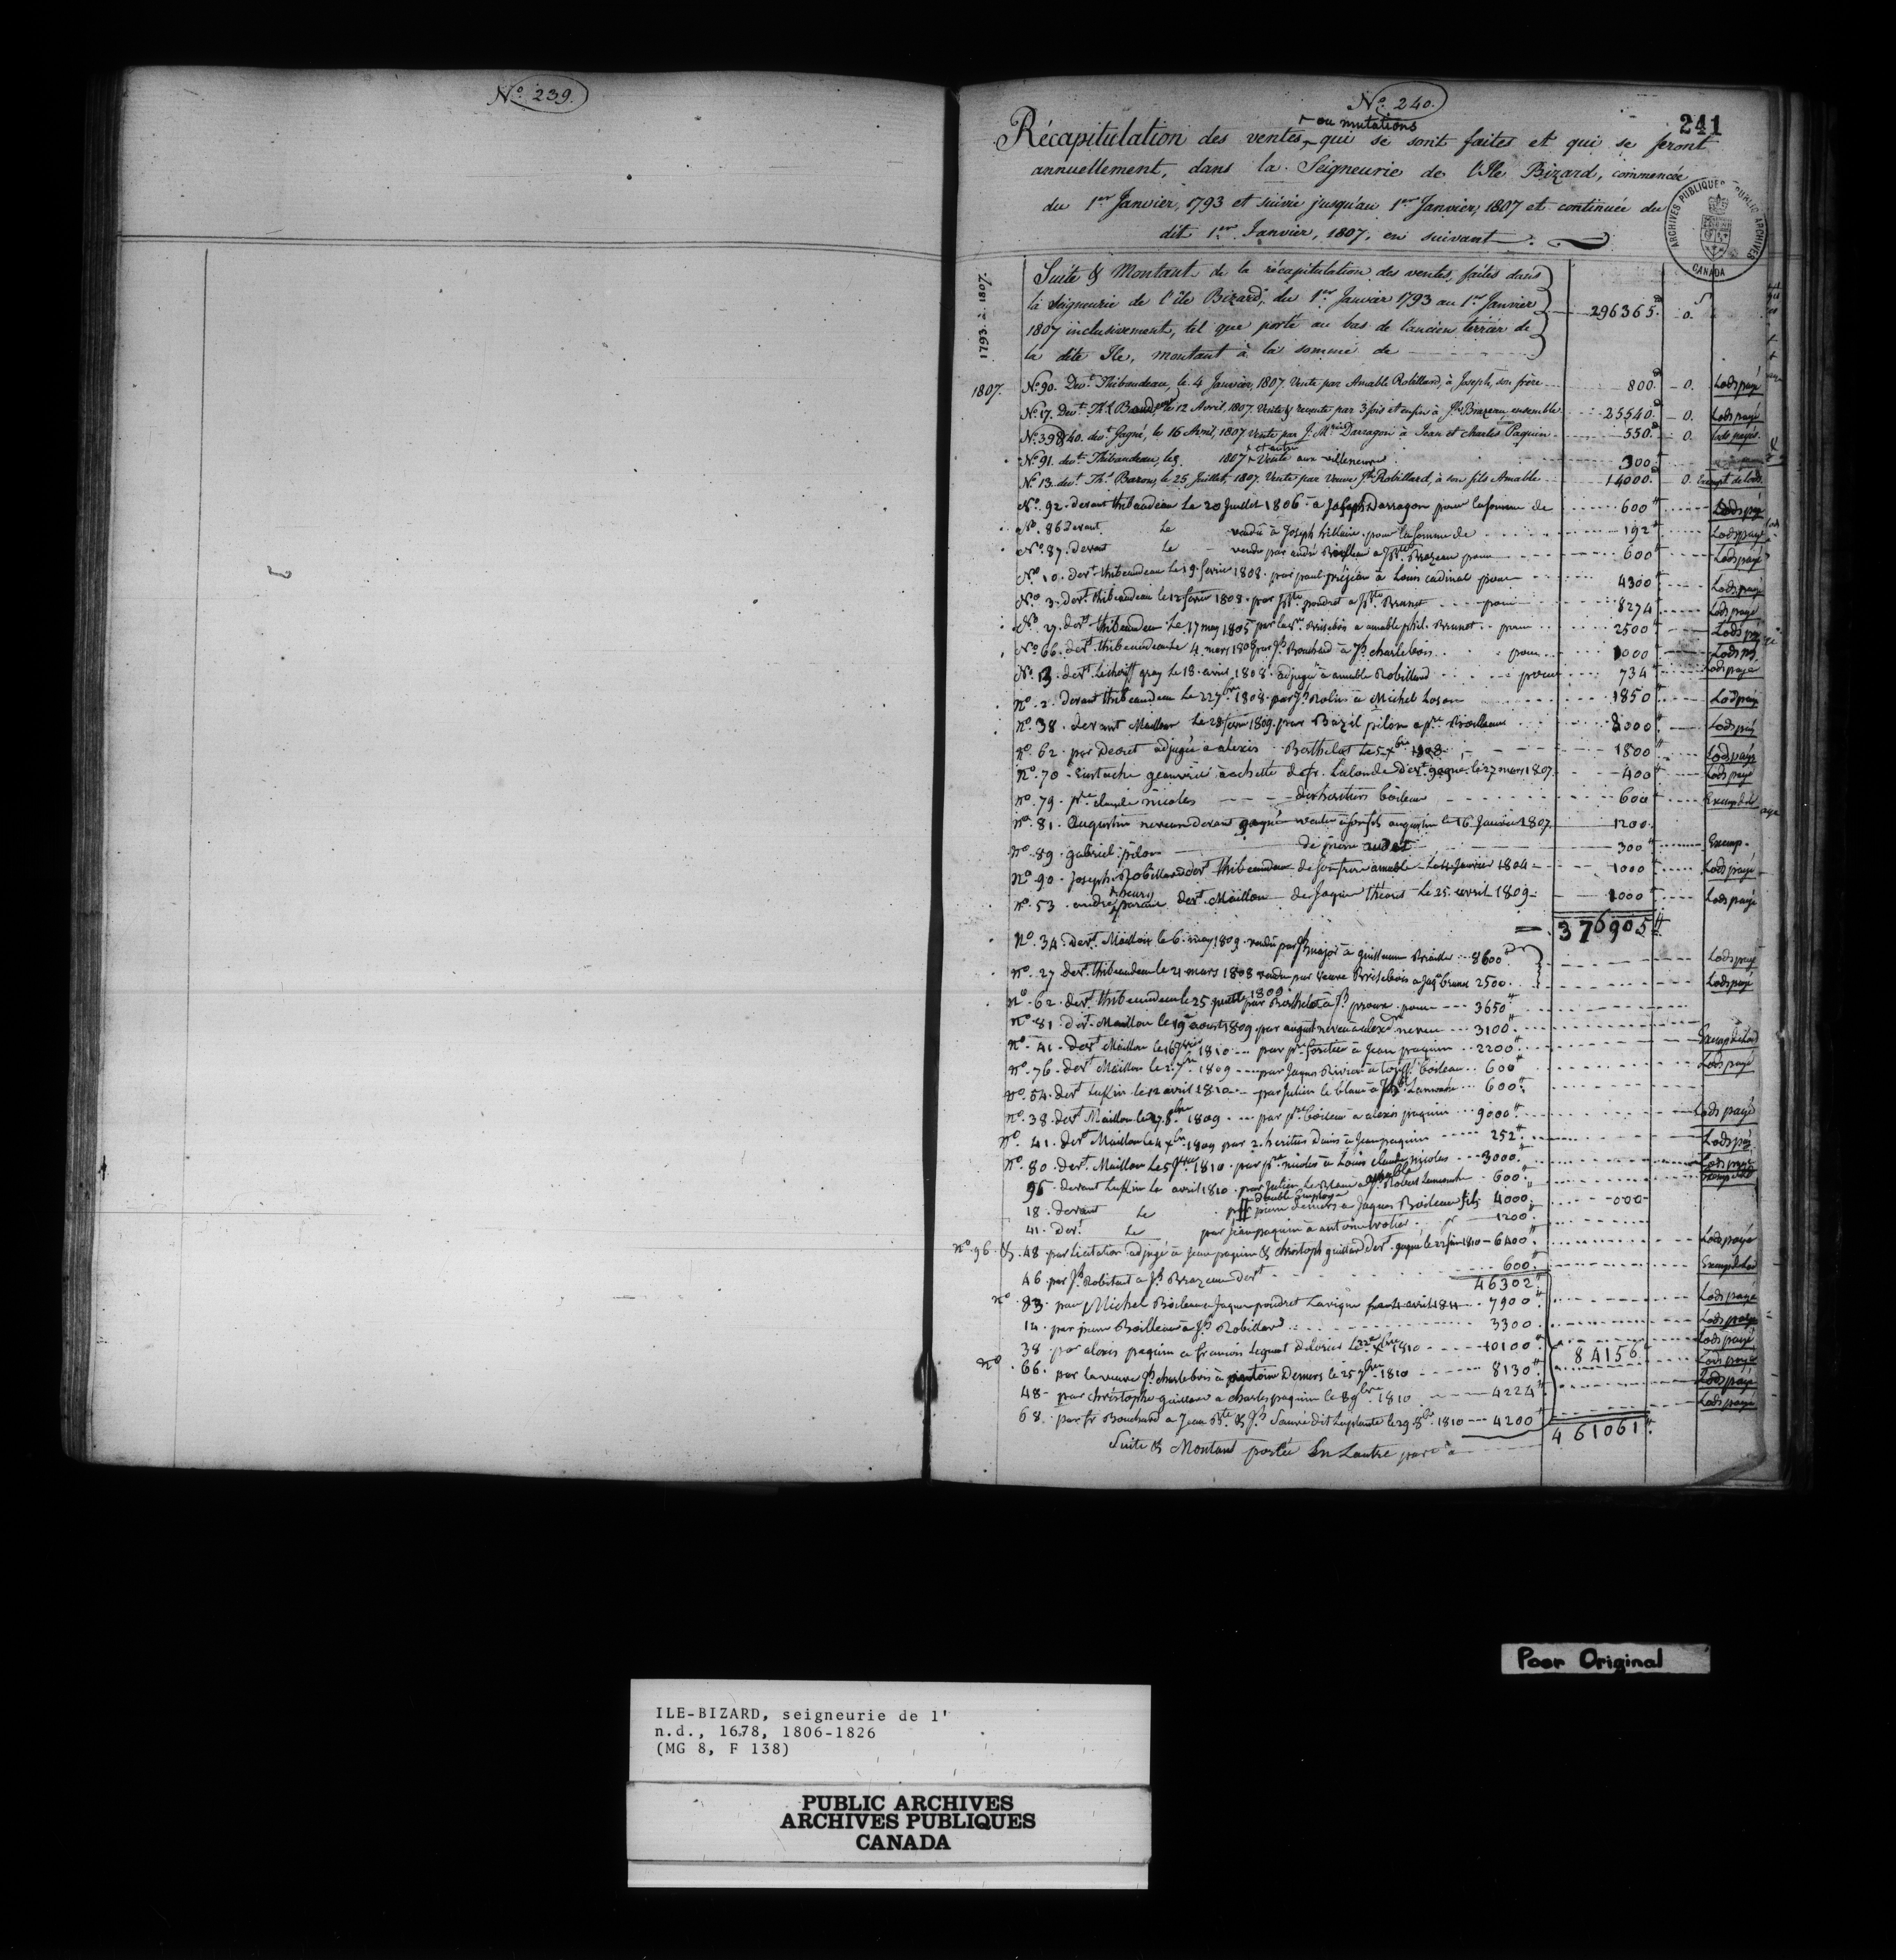 No. 239.
No. 240.
241
ou mutations
Récapitulation des ventes qui se sont faites et qui se feront
annuellement, dans la Seigneurie de l'Ile Bizard, commencée
du 1er Janvier, 1793 et suivie jusqu'au 1er Janvier, 1807 et continuée du
dit 1er Janvier, 1807, en suivant.
ARCHIVES PUBLIQUES PUBLIC ARCHIVES
CANADA
1793 à 1807.
Suite & Montant de la récapitulation des ventes, faites dans
la Seigneurie de l'île Bizard, du 1er Janvier 1793 au 1er Janvier
1807 inclusivement, tel que porté au bas de l'ancien terrier de
la dite Ile, montant à la somme de 296365. 0.
1807. No. 90. Devt. Thibaudeau, le 4 Janvier, 1807. Vente par Amable Robillard, à Joseph, son frère 800. 0. Lods payé
No. 17. Devt. 12 Avril, 1807. Vente & revente par 3 fois et enfin à Jh. Brazeau, ensemble 25540. 0. Lods payé
No. 39 & 40. devt. Gagné, le 16 Avril, 1807. Vente par J. Mrie Darragon à Jean et Charles Paquin 550. 0. Lods payés.
No. 91. devt. Thibaudeau, le 1807 Vente aux 300
No. 13. devt. Ths. Barons, le 25 Juillet, 1807. Vente par Veuve Jh. Robillard, à son fils Amable 14000. 0. Exempt de lods.
No. 92. devant thibaudeau Le 20 Juillet 1806 à Joseph Darragon pour la somme de 600 Lods payé
No. 86 Devant Le vendu à Joseph hillaire pour la somme de 192 Lods payé
No. 87. devant Le vendu par andré Boileau a Jbte. Brazeau pour 600 Lods payé
No. 10. devt. thibaudeau Le 19 fevrier 1808. par paul préjean à Louis cadinal pour 4300 Lods payé
No. 3. devt. thibaudeau le 12 fevrier 1808. par Jbte. poudret a Jbte. Brunet pour 8274 Lods payé
No. 27. devt. thibaudeau Le 17 may 1805 par la ve. Brisebois a amable phil. Brunet pour 2500 Lods payé
No. 66. devt. thibaudeau Le 4 mars 1808 par Jh Bouchard à Jh charlebois pour 1000 Lods pé
No. 13. devt. Le shériff gray le 18 avril 1808 adjugé à amable Robillard pour 734 Lods payé
No. 2. devant thibaudeau Le 22 7bre 1808. par Jh Rolin à Michel Lason 1850 Lods payé
No. 38. devant Maillou Le 28 fevrier 1809. par Bazil pilon a pre. Boileau 2000 Lods payé
No. 62. par Decret adjugée a alexis Berthelot Le 5 Xbre 1808 1800 Lods payé
No. 70. Eustache achette de fr. Lalonde devt. gagné. le 27 mars 1807. 400 Lods payé
No. 79. pre. claude nicolas des heritiers boileau 600 Exempt de lods
No. 81. Augustin neveu devant gagné vente à son fils augustin le 16 Janvier 1807 1200
No. 89. gabriel pilon de pierre 300 Exemp.
No. 90. Joseph Robillard devt. thibaudeau de son frere amable Le 4 Janvier 1804 1000 Lods payé
No. 53. andré paran devt. Maillou de Jaque théoret Le 25 avril 1809 1000 Lods payé
376905
No. 34. devt. Maillou le 6 may 1809. vendu par Jh major à guillaume 8600 Lods payé
No. 27 devt. thibaudeau le 21 mars 1808 vendu par veuve Brisebois a Jaqe brunet 2500 Lods payé
No. 62. devt. thibaudeau le 25 1809 par Berthelot à Jh proux pour 3650
No. 81. devt. Maillou le 19 aoust 1809 par august neveu à alexdre neveu 3100 Exempt de Lod
No. 41. devt. Maillou le 16 1810 par pre. fortier à Jean paquin 2200 Lods payé
No. 76. devt. Maillou le 2 1809 par Jaques Rivier à boileau 600
No. 54. devt. Lukin le 12 avril 1810 par Julien le blanc à 600
No. 38. devt. Maillou le 27 8bre 1809 par pre. boileau a alexis paquin 9000 Lods payé
No. 41. devt. Maillou le 4 Xbre 1809 par 2 heritiers Dains à Jean paquin 252 Lods pé
No. 80. devt. Maillou Le 5 1810. par pre. nicolas à Louis claude nicolas 3000 Lods payé
96. devant Lukin Le avril 1810. par Julien Le Blanc a Robert Lamouche 600 Exempt de lod
double employé
18. devant Le par pierre demers à Jaques Boileau fils 4000 000
41. devt. Le par Jean paquin à antoine 1200
No. 96. & 48. par Licitation adjugé à Jean paquin & christoph guillard devt. gagné le 22 Juin 1810 6400 Lods payé
46. par Jh Robitard a Jh Brazeau devt. 600 Exempt de Lod
46302
No. 83. par Michel Boileau a Jaque poudret Lavigne avril 1811 7900 Lods payé
14. par pierre Boilleau à Jh Robillard 3300 Lods payé
38 par alexis paquin a francois Leguot delorier Le Xbre 1810 10100 84156 Lods payé
No. 66. par la veuve Jh charlebois à antoine Demers le 25 7bre 1810 8130 Lods payé
48. par christophe guillard a charles paquin le 8 9bre 1810 4224 Lods payé
68. par fr Bouchard a Jean Bte. & Jh Sauvé dit Laplante le 29 8bre 1810 4200 Lods payé
461061
Suite & Montant portée En Lautre part à
Poor Original
ILE-BIZARD, seigneurie de l'
n.d., 1678, 1806-1826
(MG 8, F 138)
PUBLIC ARCHIVES
ARCHIVES PUBLIQUES
CANADA